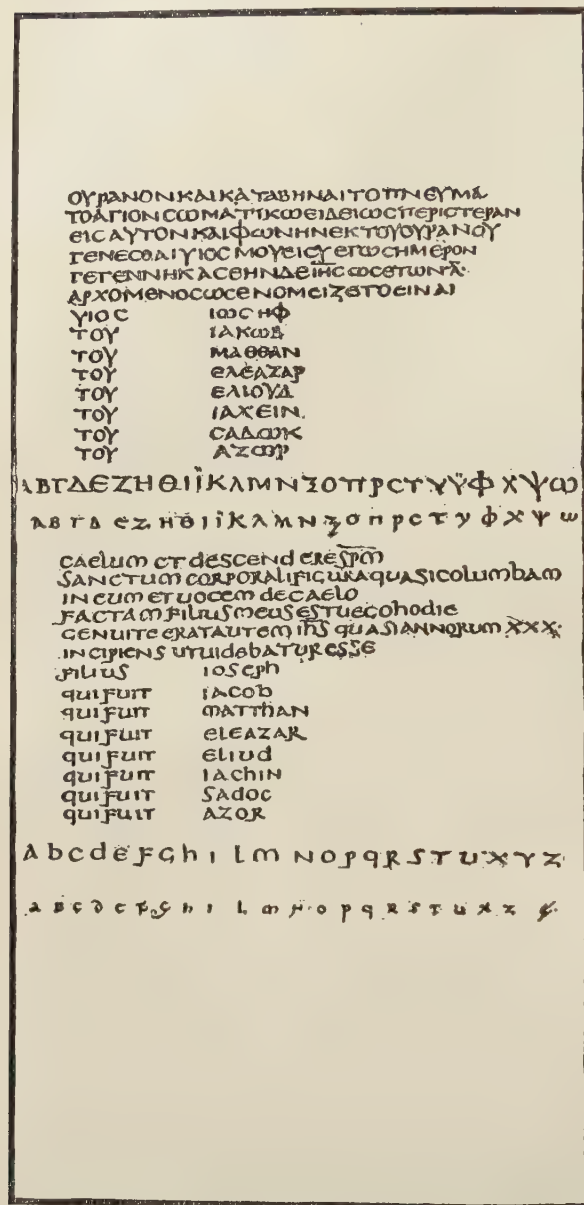 ΟΥΡΑΝΟΝΚΑΙΚΑΤΑΒΗΝΑΙΤΟΠΝΕΥΜΑ
ΤΟΑΓΙΟΝCΩΜΑΤΙΚΩΕΙΔΕΙΩCΠΕΡΙCΤΕΡΑΝ
ΕΙCΑΥΤΟΝΚΑΙΦΩΝΗΝΕΚΤΟΥΟΥΡΑΝΟΥ
ΓΕΝΕCΘΑΙΥΙΟCΜΟΥΕΙCΥΕΓΩCΗΜΕΡΟΝ
ΓΕΓΕΝΝΗΚΑCΕΗΝΔΕΙΗCΩCΕΤΩΝΛ·
ΑΡΧΟΜΕΝΟCΩCΕΝΟΜΕΙΖΕΤΟΕΙΝΑΙ
ΥΙΟC ΙΩCΗΦ
ΤΟΥ ΙΑΚΩΒ
ΤΟΥ ΜΑΘΘΑΝ
ΤΟΥ ΕΛΕΑΖΑΡ
ΤΟΥ ΕΛΙΟΥΔ
ΤΟΥ ΙΑΧΕΙΝ
ΤΟΥ CΑΔΩΚ
ΤΟΥ ΑΖΩΡ
ΑΒΓΔΕΖΗΘΙΪΚΛΜΝΞΟΠΡCΤΥΫΦΧΨΩ
ΑΒΓΔΕΖΗΘΙΪΚΛΜΝΞΟΠΡCΤΥΦΧΨΩ
caelum et descendereSpm
SANCTUM CORPORALIFIGURAQUASICOLUMBAM
IN EUM ET UOCEM DECAELO
FACTAM FILIUS MEUS ES TUEGOHODIE
GENUITEERATAUTEM IHS QUASIANNORUM XXX·
INCIPIENS UTUIDEBATUR ESSE
FILIUS IOSEPh
QUIFUIT IACOb
QUIFUIT MATTHAN
QUIFUIT ELEAZAR
QUIFUIT ELIUd
QUIFUIT IACHIN
QUIFUIT SADOC
QUIFUIT AZOR
A b c d e F G h I L M N O P q R S T U X Y Z
A B C D E F G h I L M N O P q R S T U X Z